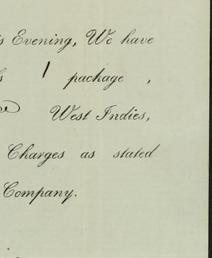 s Evening, We have
s 1 package ,
West Indies,
Charges as stated
Company.